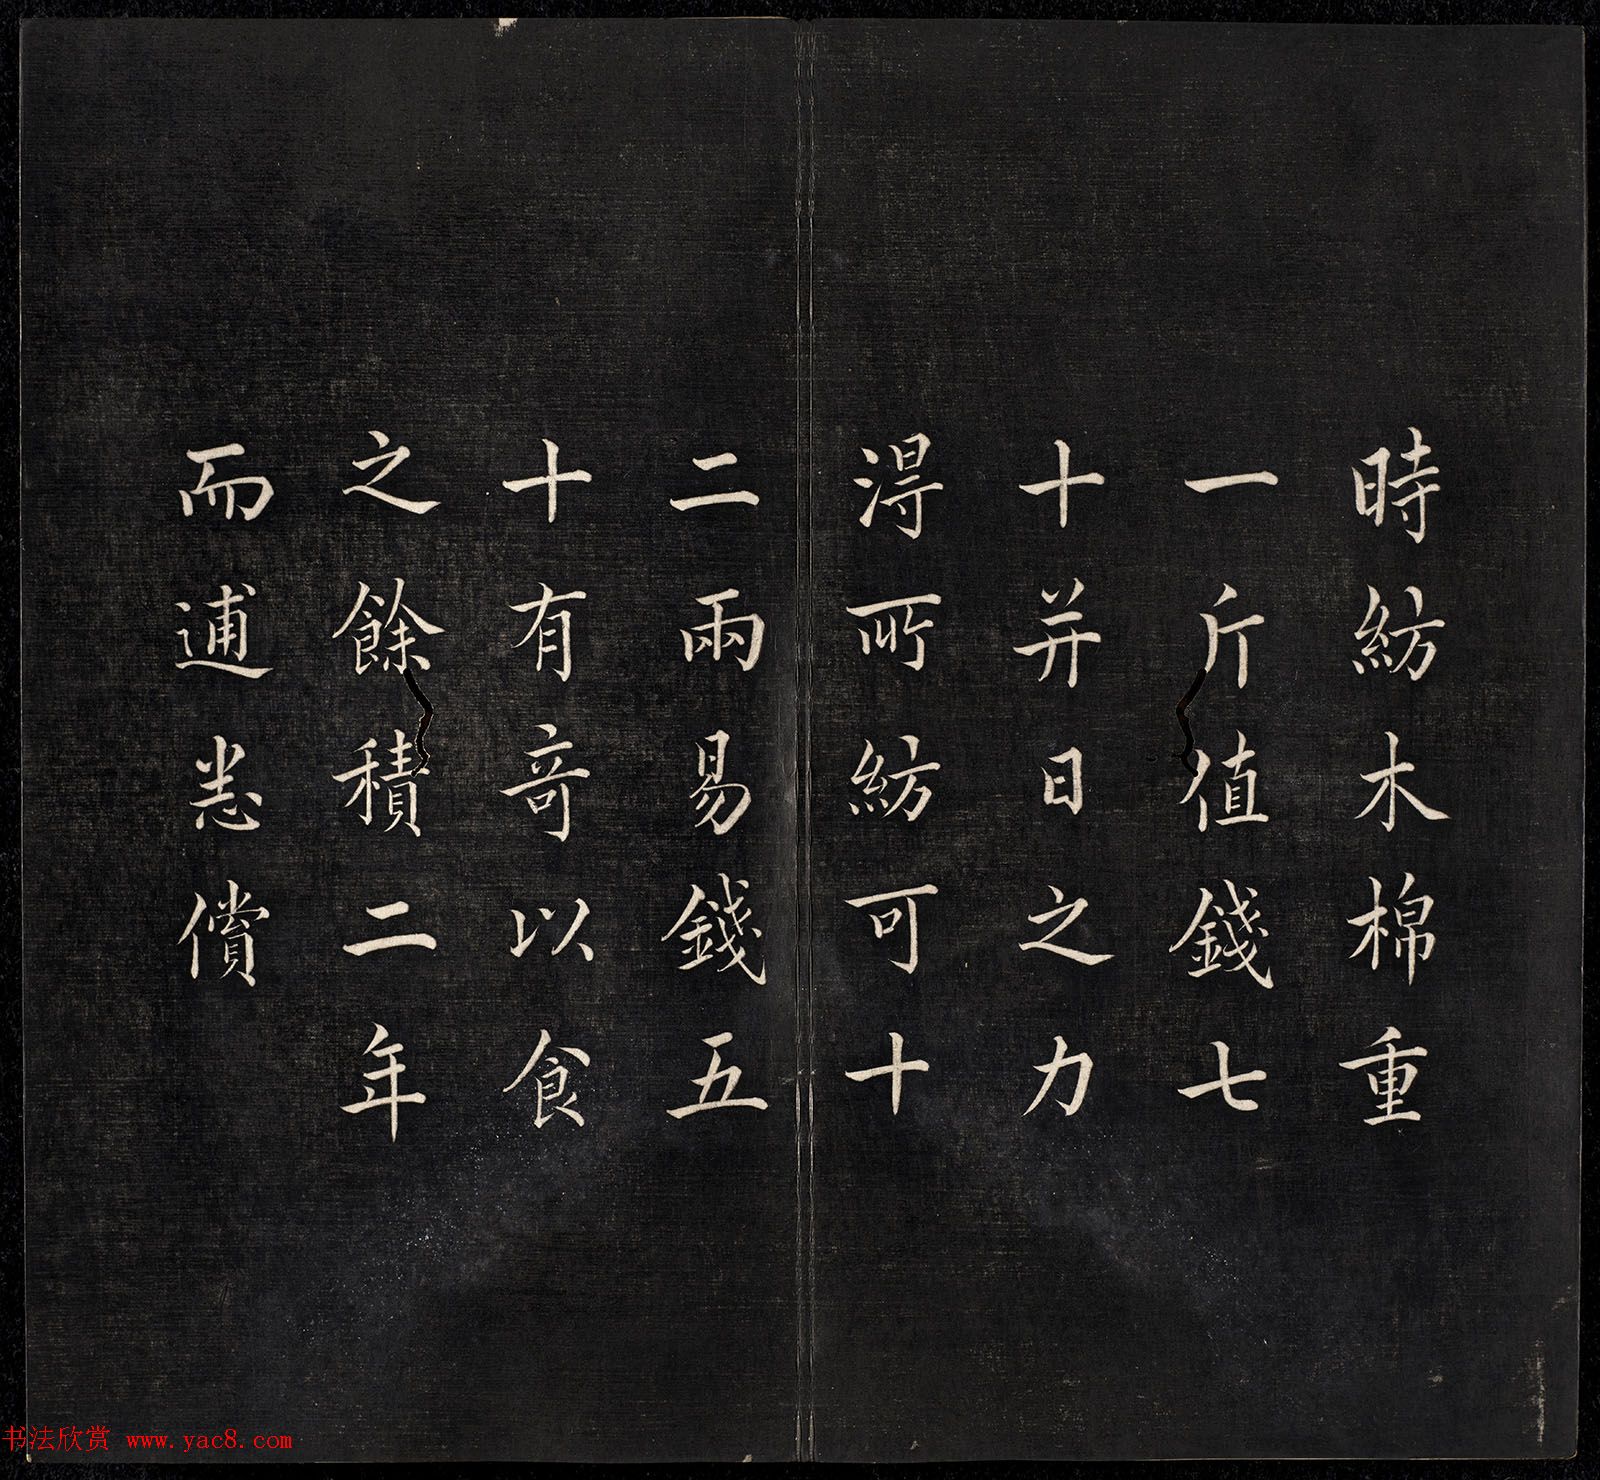 時紡木棉重
一斤值錢七
十并日之力
淂所紡可十
二兩易錢五
十有竒以食
之餘積二年
而逋悉償
书法欣赏 www.yac8.com